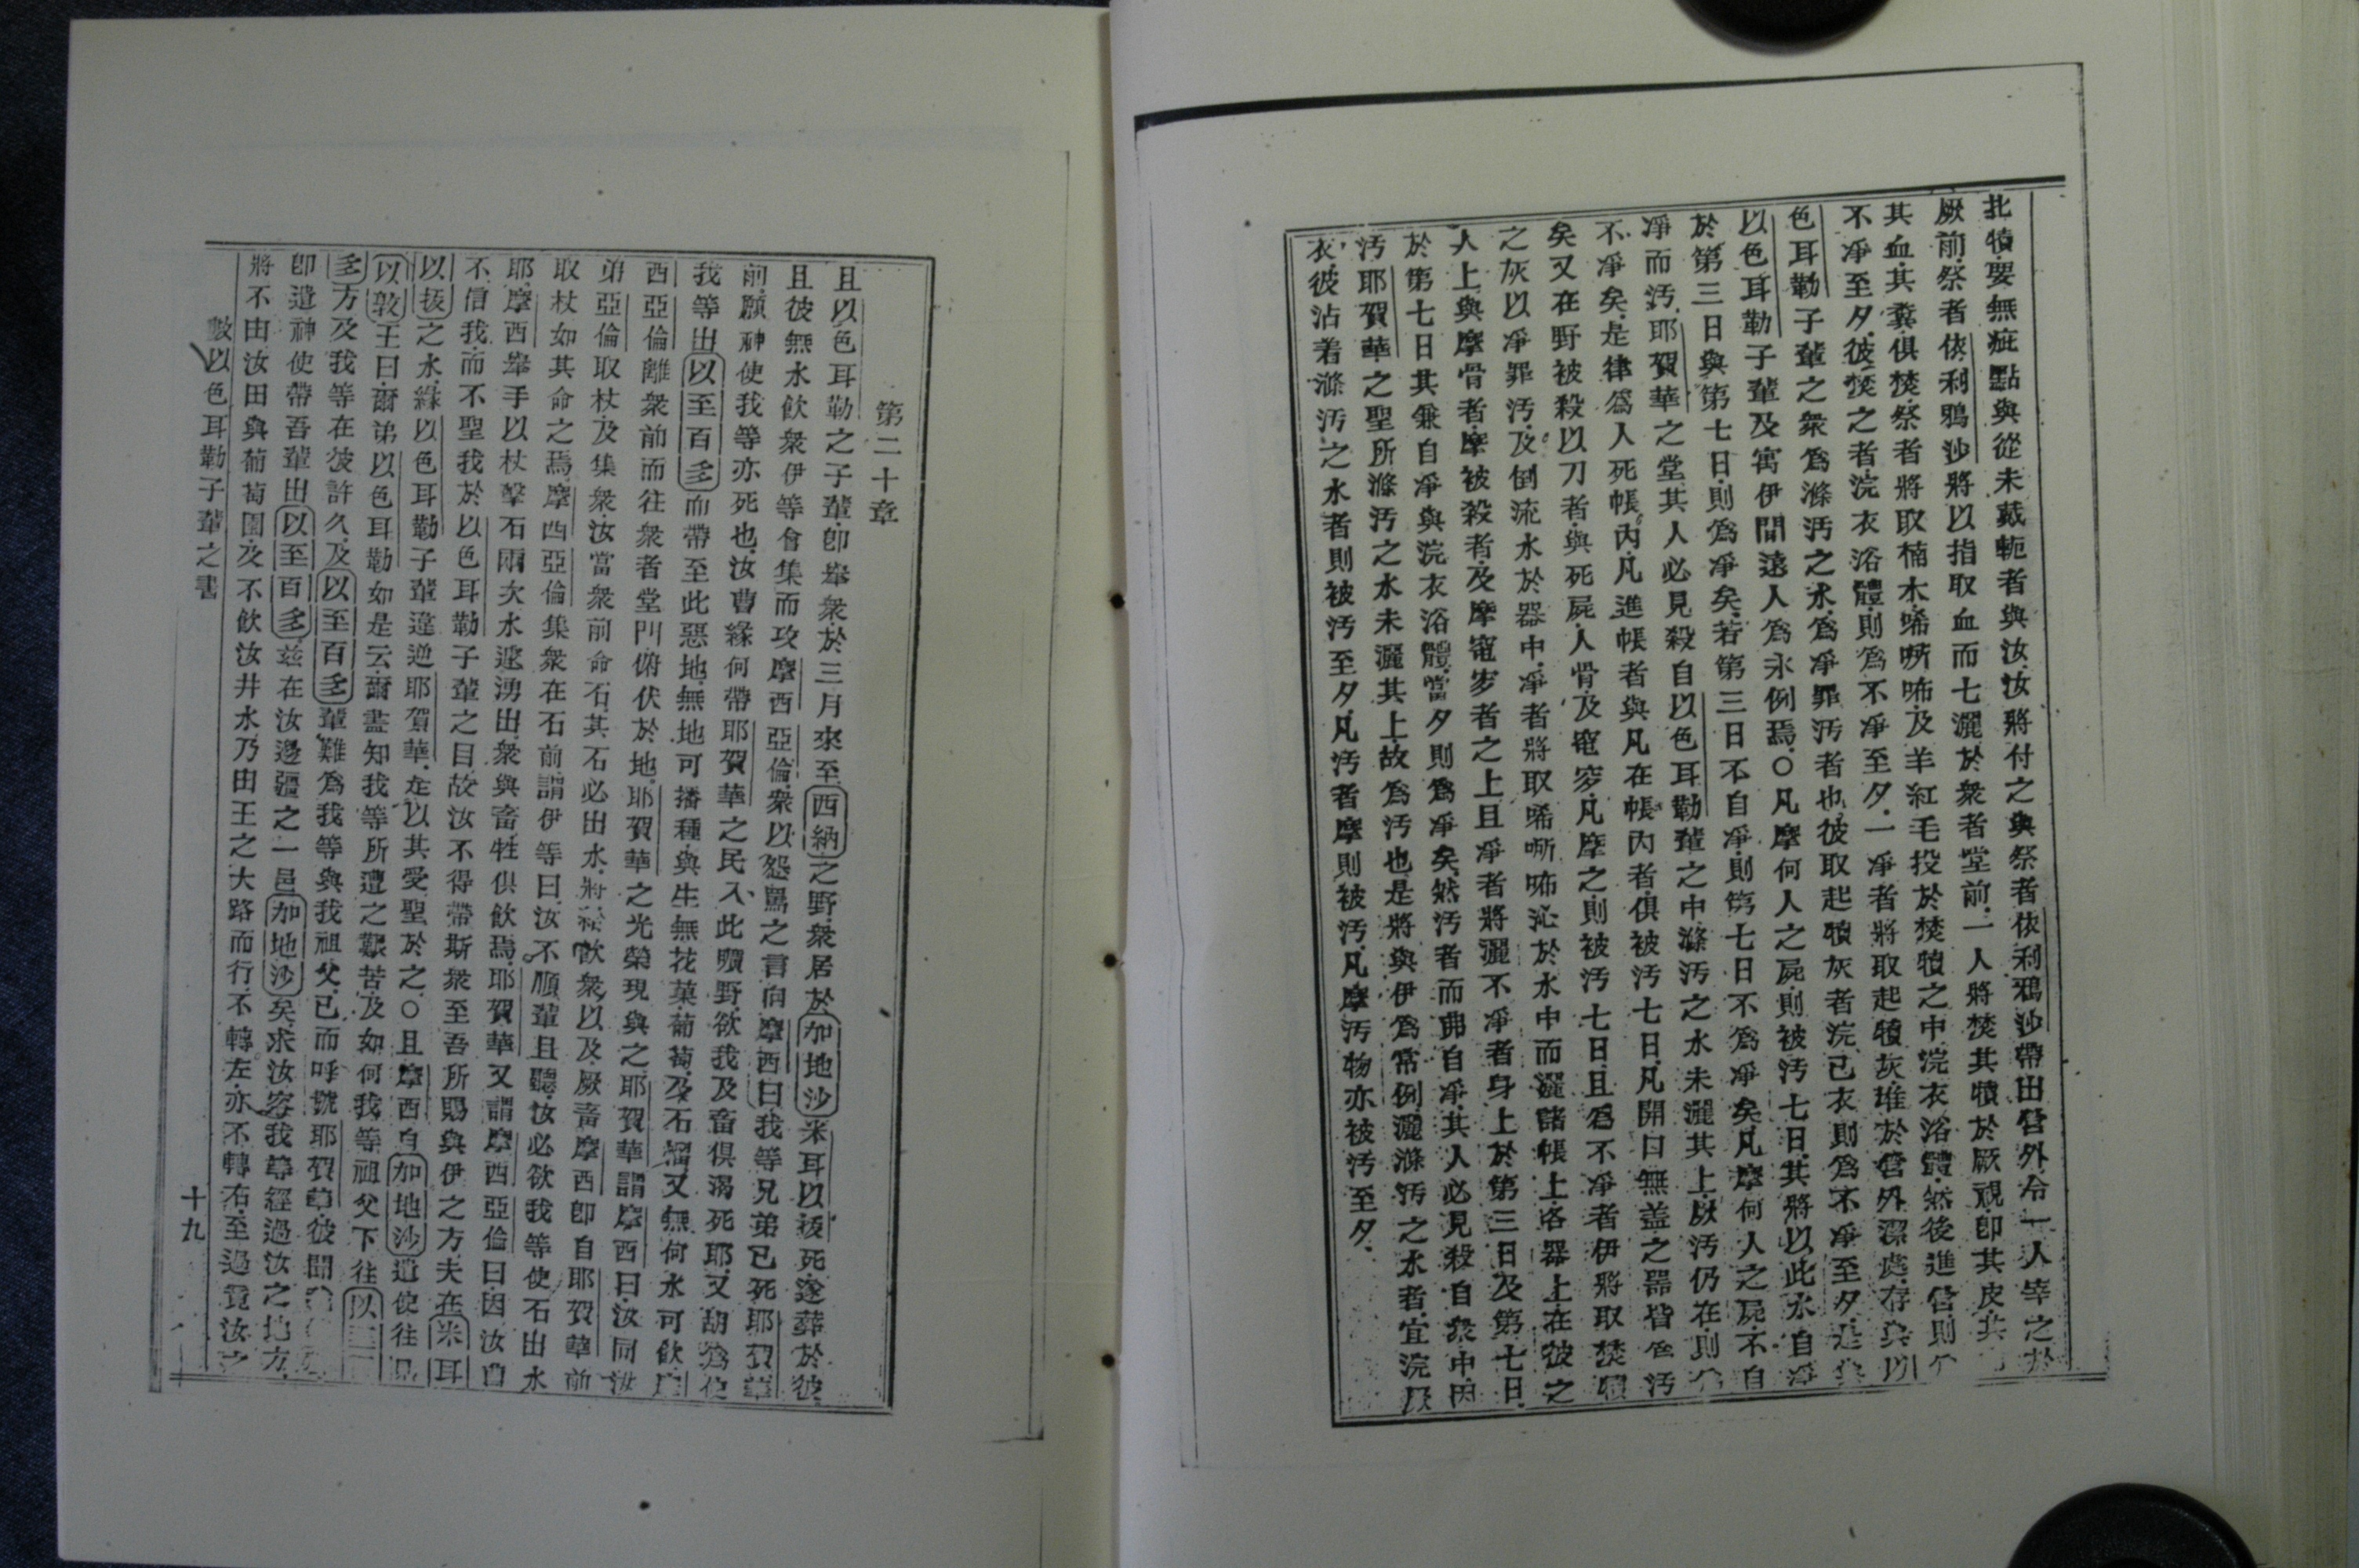 牝犢要無疵點與從未戴軛者與汝汝將付之與祭者依利鴉沙帶出營外令一人宰之於
厥前祭者依利鴉沙將以指取血而七灑於衆者堂前一人將焚其犢於厥視卽其皮其
其血其糞俱焚祭者將取楠木唏㗚咘及羊紅毛投於焚犢之中浣衣浴體然後進營則
不凈至夕彼焚之者浣衣浴體則爲不凈至夕一凈者將取起犢灰堆於營外潔處存與以
色耳勒子輩之衆爲滌汚之水爲凈罪汚者也彼取起犢灰者浣己衣則爲不凈至夕
以色耳勒子輩及寓伊間遠人爲永例焉○凡摩何人之屍則被汚七日其將以此水自凈
於第三日與第七日則爲凈矣若第三日不自凈則第七日不爲凈矣凡摩何人之屍不自
凈而汚耶賀華之堂其人必見殺自以色耳勒輩之中滌汚之水未灑其上厥汚仍在則
不凈矣是律爲人死帳內凡進帳者與凡在帳內者俱被汚七日凡開口無盖之器皆爲汚
矣又在野被殺以刀者與死屍人骨及窀穸凡摩之則被汚七日且爲不凈者伊將取焚犢
之灰以凈罪汚及倒流水於器中凈者將取唏㗚咘沁於水中而灑諸帳上各器上在彼之
人上與摩骨者摩被殺者及摩窀穸者之上且凈者將灑不凈者身上於第三日及第七日
於第七日其兼自凈與浣衣浴體當夕則爲凈矣然汚者而弗自凈其人必見殺自衆中因
汚耶賀華之聖所滌汚之水未灑其上故爲汚也是將與伊爲常例灑滌汚之水者宜浣厥
衣彼沾着滌汚之水者則被汚至夕凡汚者摩則被汚凡摩汚物亦被汚至夕
第二十章
且以色耳勒之子輩卽舉衆於三月來至西納之野衆居於加地沙米耳以扳死遂葬於彼
且彼無水飲衆伊等會集而攻摩西亞倫衆以怨罵之言向摩西曰我等兄弟已死耶賀華
前願神使我等亦死也汝曹緣何帶耶賀華之民入此曠野欲我及畜俱渴死耶又胡爲使
我等出以至百多而帶至此惡地無地可播種與生無花菓葡萄及石榴又無何水可飲摩
西亞倫離衆前而往衆者堂門俯伏於地耶賀華之光榮現與之耶賀華謂摩西曰汝同汝
弟亞倫取杖及集衆汝當衆前命石其石必出水將飲衆以及厥畜摩西卽自耶賀華前
取杖如其命之焉摩西亞倫集衆在石前謂伊等曰汝不順輩且聽汝必欲我等使石出水
耶摩西舉手以杖擊石兩次水遂湧出衆與畜牲俱飲焉耶賀華又謂摩西亞倫曰因汝曹
不信我而不聖我於以色耳勒子輩之目故汝不得帶斯衆至吾所賜與伊之方夫在米耳
以扳之水緣以色耳勒子輩違逆耶賀華是以其受聖於之○且摩西自加地沙遣使往見
以敦王曰爾弟以色耳勒如是云爾盡知我等所遭之艱苦及如何我等祖父下往以至百
多方及我等在彼許久及以至百多輩難爲我等與我祖父已而呼號耶賀華彼聞
卽遣神使帶吾輩出以至百多兹在汝邊疆之一邑加地沙矣求汝容我等經過汝之地方
將不由汝田與葡萄園及不飲汝井水乃由王之大路而行不轉左亦不轉右至過竟汝之
數以色耳勒子輩之書 十九